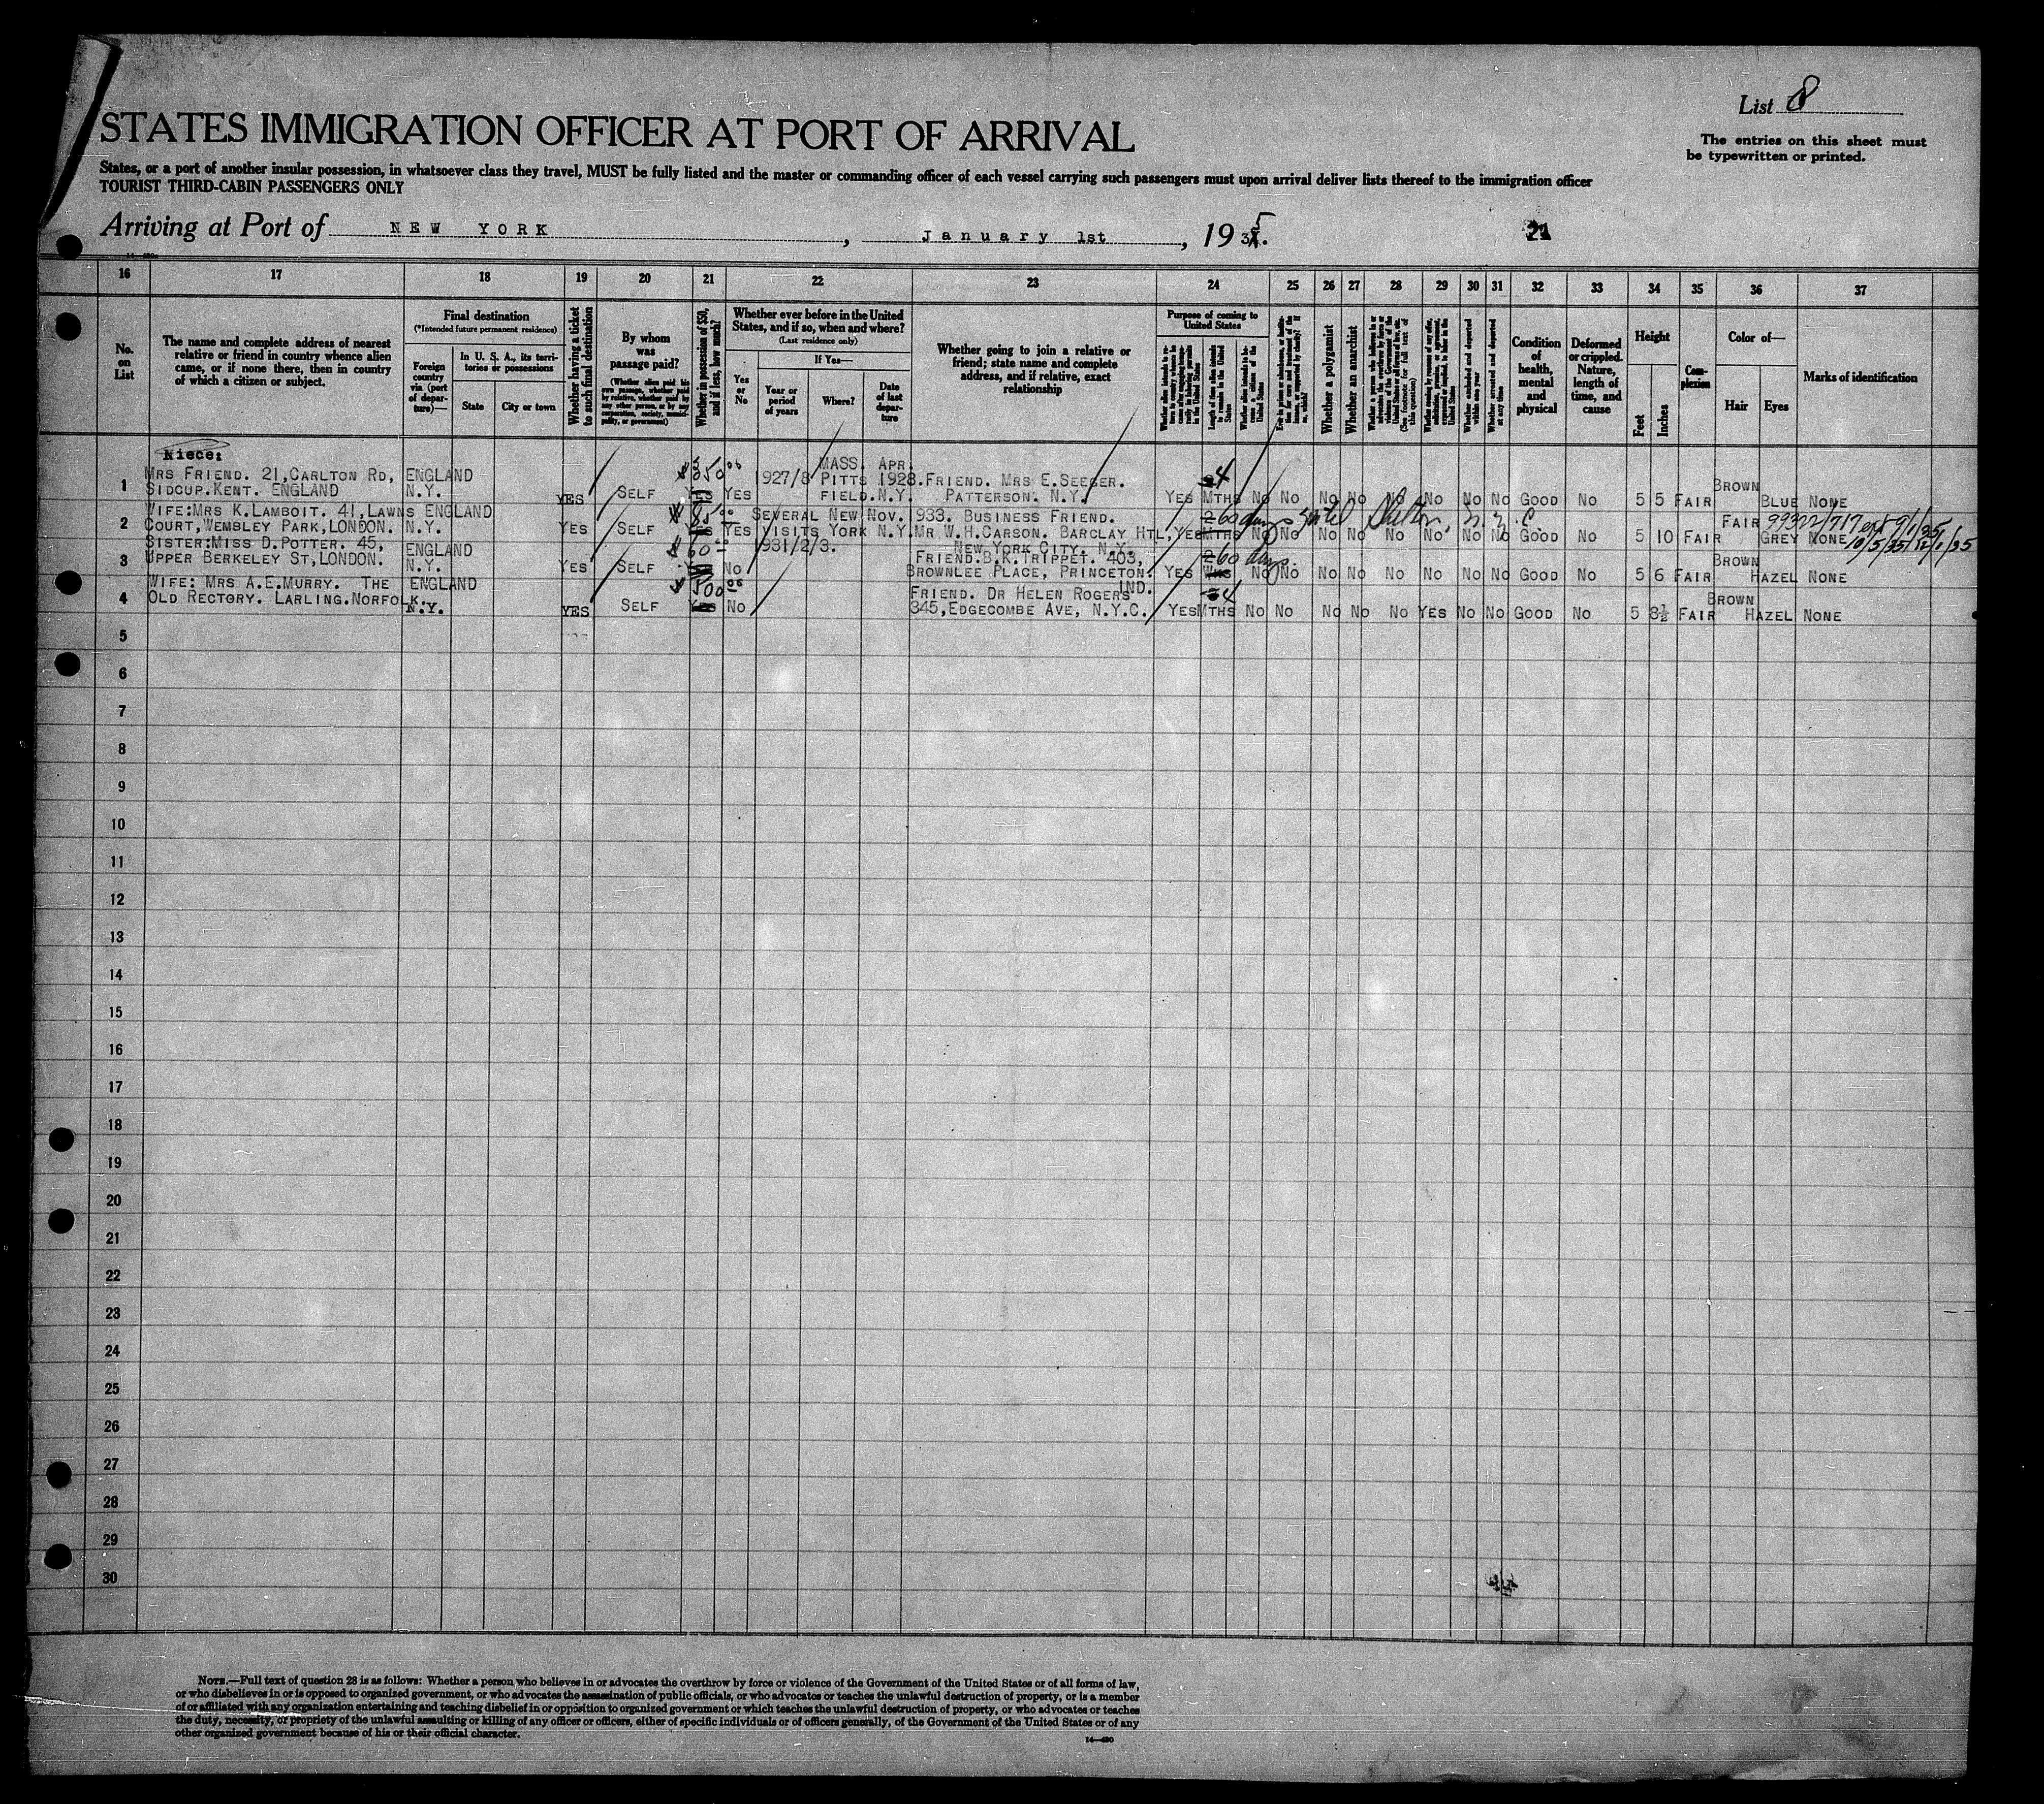 List 8
STATES IMMIGRATION OFFICER AT PORT OF ARRIVAL
The entries on this sheet must
be typewritten or printed.
States, or a port of another insular possession, in whatsoever class they travel, MUST be fully listed and the master or commanding officer of each vessel carrying such passengers must upon arrival deliver lists thereof to the immigration officer
TOURIST THIRD-CABIN PASSENGERS ONLY
Arriving at Port of NEW YORK, January 1st, 1935.
21
16 17 18 19 20 21 22 23 24 25 26 27 28 29 30 31 32 33 34 35 36 37
No. on List
The name and complete address of nearest
relative or friend in country whence alien
came, or if none there, then in country
of which a citizen or subject.
Final destination
(*Intended future permanent residence)
Foreign country via (port of departure)—
In U. S. A., its territories or possessions
State
City or town
Whether having a ticket to such final destination
By whom was passage paid?
(Whether alien paid his own passage, whether paid by relative, whether paid by any other person, or by any corporation, society, municipality, or government)
Whether in possession of $50, and if less, how much?
Whether ever before in the United
States, and if so, when and where?
(Last residence only)
Yes or No
If Yes—
Year or period of years
Where?
Date of last departure
Whether going to join a relative or
friend; state name and complete
address, and if relative, exact
relationship
Purpose of coming to United States
Length of time alien intends to remain in the United States
Whether a polygamist
Whether an anarchist
Condition of health, mental and physical
Deformed or crippled. Nature, length of time, and cause
Height
Feet
Inches
Complexion
Color of—
Hair
Eyes
Marks of identification
NIECE:
1 MRS FRIEND. 21, CARLTON RD, SIDCUP. KENT. ENGLAND ENGLAND N.Y. YES SELF YES YES 1927/8 MASS. PITTSFIELD. N.Y. APR. 1928. FRIEND. MRS E. SEEGER. PATTERSON. N.Y. YES 4 MTHS NO NO NO NO NO NO NO NO GOOD NO 5 5 FAIR BROWN BLUE NONE
2 WIFE: MRS K. LAMBOIT. 41, LAWNS COURT, WEMBLEY PARK, LONDON. ENGLAND N.Y. YES SELF YES YES SEVERAL VISITS NEW YORK N.Y. NOV. 1933. BUSINESS FRIEND. MR W.H. CARSON. BARCLAY HTL, NEW YORK CITY. N.Y. YES 2 MTHS 60 days NO NO NO NO NO NO NO NO GOOD NO 5 10 FAIR FAIR GREY NONE
Shelton, N.Y.C.
3 SISTER: MISS D. POTTER. 45, UPPER BERKELEY ST, LONDON. ENGLAND N.Y. YES SELF 60 NO 1931/2/3. FRIEND. B.K. TRIPPET. 403, BROWNLEE PLACE, PRINCETON. IND. YES 60 days NO NO NO NO NO NO NO NO GOOD NO 5 6 FAIR BROWN HAZEL NONE
4 WIFE: MRS A.E. MURRY. THE OLD RECTORY. LARLING. NORFOLK. ENGLAND N.Y. YES SELF 500 YES NO FRIEND. DR HELEN ROGERS 345, EDGECOMBE AVE, N.Y.C. YES 4 MTHS NO NO NO NO NO YES NO NO GOOD NO 5 8½ FAIR BROWN HAZEL NONE
5
6
7
8
9
10
11
12
13
14
15
16
17
18
19
20
21
22
23
24
25
26
27
28
29
30
NOTE.—Full text of question 28 is as follows: Whether a person who believes in or advocates the overthrow by force or violence of the Government of the United States or of all forms of law,
or who disbelieves in or is opposed to organized government, or who advocates the assassination of public officials, or who advocates or teaches the unlawful destruction of property, or is a member
of or affiliated with any organization entertaining and teaching disbelief in or opposition to organized government or which teaches the unlawful destruction of property, or who advocates or teaches
the duty, necessity, or propriety of the unlawful assaulting or killing of any officer or officers, either of specific individuals or of officers generally, of the Government of the United States or of any
other organized government because of his or their official character.
14—480